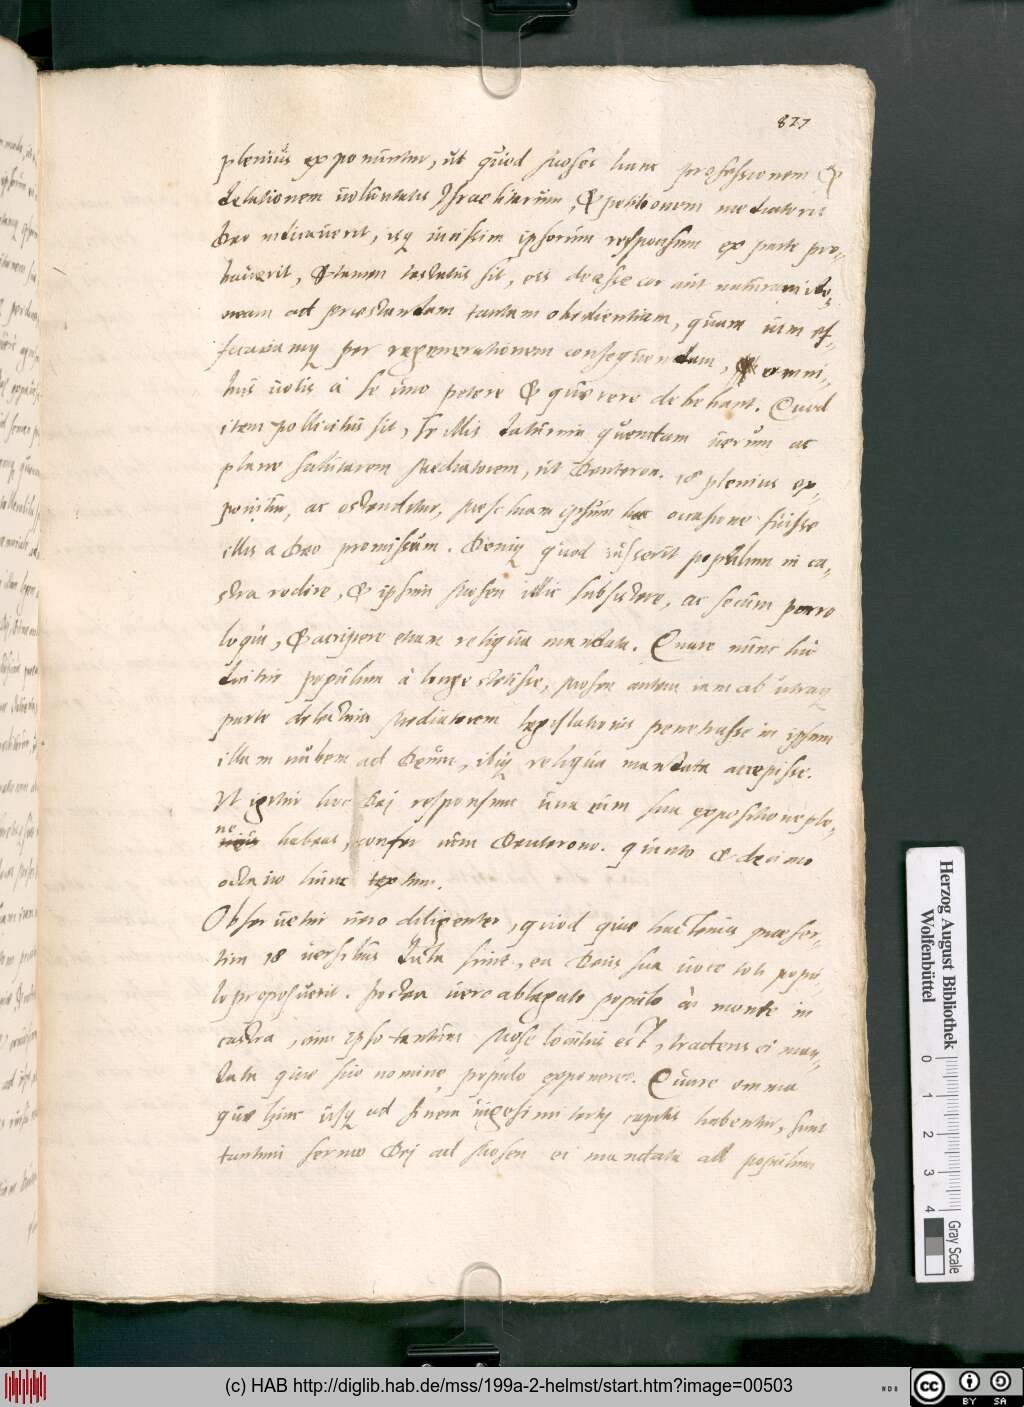 827
plenius exponuntur, ut quod Moses hanc professionem &
delationem uoluntatis Israelitarum, & petitionem mediatoris
Deo indicauerit, isq uicissim ipsorum responsum ex parte pro-
bauerit, & tamen testatus sit, eis deesse cor aut naturam ido-
neam ad praestandam tantam obedientiam, quam cum ef-
ficaciamq per regenerationem consequendam, omni-
bus uotis à se uno petere & quaerere debebant. Quod
item pollicitus sit, se illis daturum quendam uerum ac
plane salutarem Mediatorem, ut Deuteron. 18 plenius ex-
ponitur, ac ostenditur, Meschiam ipsum hac occasione fuisse
illis a Deo promissum. Deniq quod iusserit populum in ca-
stra redire, & ipsum Mosen illic subsistere, ac secum porro
loqui, & accipere etiam reliqua mandata. Quare nunc hic
dicitur populum à longe stetisse, Mosen autem iam ab utraq
parte delectum Mediatorem legislationis penetrasse in ipsam
illam nubem ad Deum, ibiq reliqua mandata accepisse.
Vt igitur hoc Dej responsum una cum sua expositione ple-
ne habeas, confer cum Deuterono. quinto & decimo
octauo hunc textum.
Obseruetur uero diligenter, quod quae hactenus praeser-
tim 18 uersibus dicta sunt, ea Deus sua uoce toti popu-
lo proposuerit. Postea uero ablegato populo à monte in
castra, cum ipso tantum Mose locutus est, tradens ei man-
data quae suo nomine populo exponeret. Quare omnia
quae hinc usq ad finem uigesimi tertij capitis habentur, sunt
tantum sermo Dej ad Mosen ei mandata ad populum
Herzog August Bibliothek
Wolfenbüttel
0
1
2
3
4
Gray Scale
(c) HAB http://diglib.hab.de/mss/199a-2-helmst/start.htm?image=00503
cc
BY SA